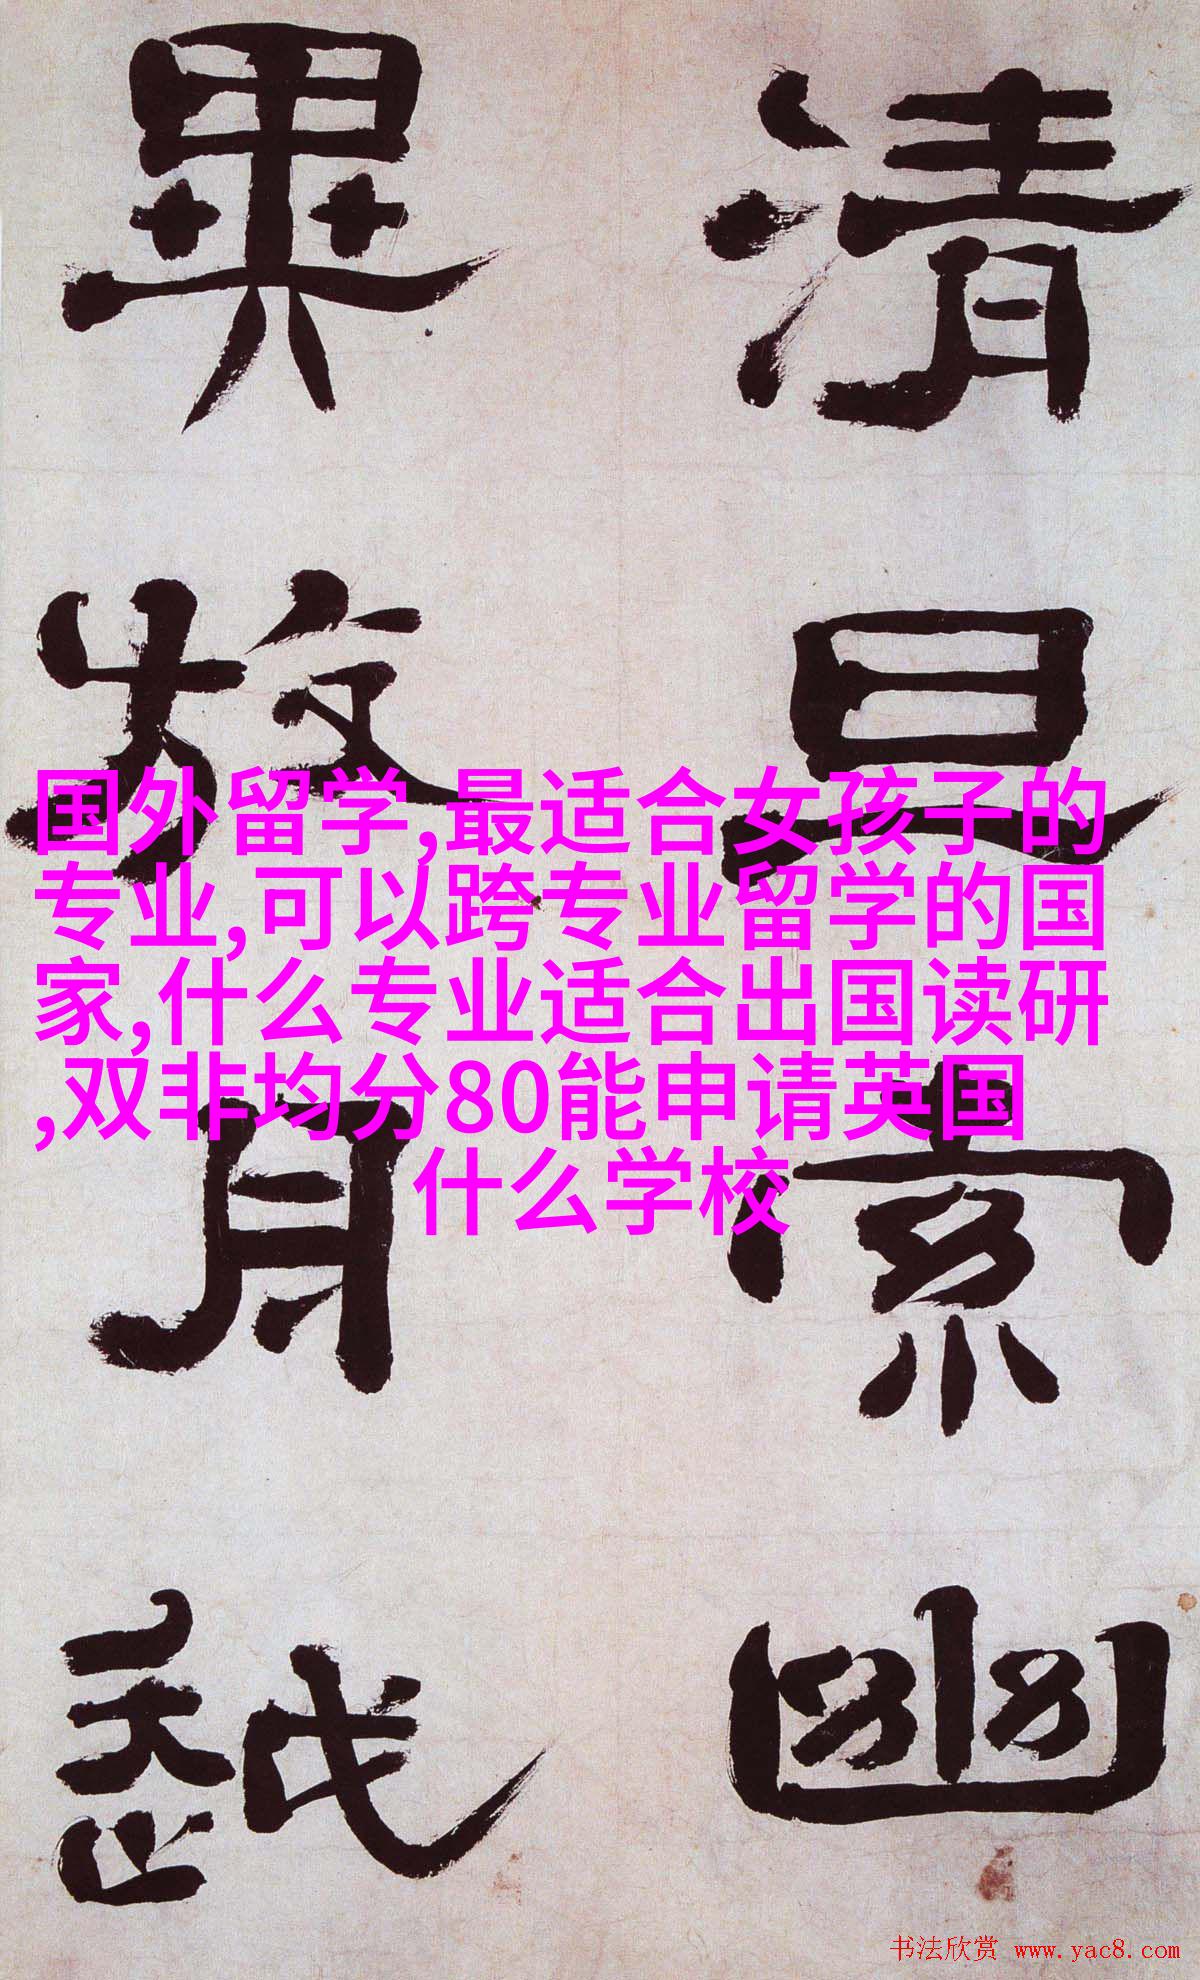 清旦索幽
異放舟越
国外留学,最适合女孩子的
专业,可以跨专业留学的国
家,什么专业适合出国读研
,双非均分80能申请英国
什么学校
书法欣赏 www.yac8.com